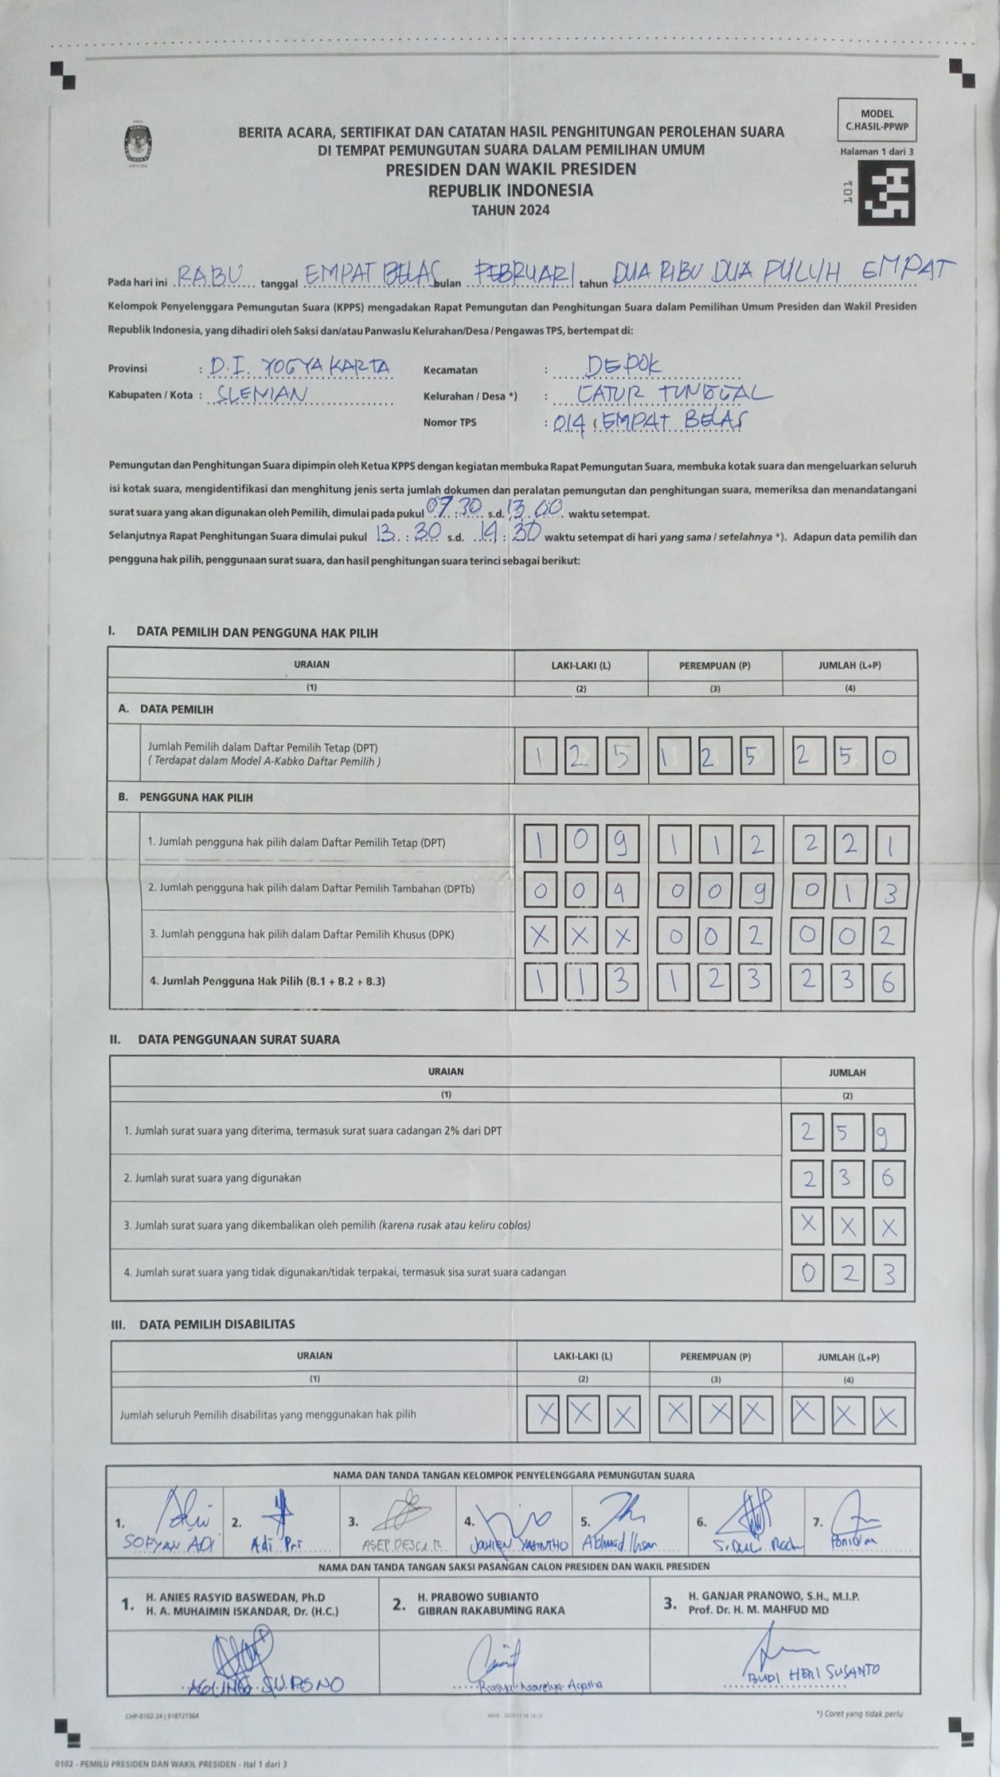 MODEL
C.HASIL-PPWP
Halaman 1 dari 3
101
BERITA ACARA, SERTIFIKAT DAN CATATAN HASIL PENGHITUNGAN PEROLEHAN SUARA
DI TEMPAT PEMUNGUTAN SUARA DALAM PEMILIHAN UMUM
PRESIDEN DAN WAKIL PRESIDEN
REPUBLIK INDONESIA
TAHUN 2024
Pada hari ini RABU tanggal EMPAT BELAS bulan FEBRUARI tahun DUA RIBU DUA PULUH EMPAT
Kelompok Penyelenggara Pemungutan Suara (KPPS) mengadakan Rapat Pemungutan dan Penghitungan Suara dalam Pemilihan Umum Presiden dan Wakil Presiden
Republik Indonesia, yang dihadiri oleh Saksi dan/atau Panwaslu Kelurahan/Desa / Pengawas TPS, bertempat di:
Provinsi : D.I. YOGYAKARTA Kecamatan : DEPOK
Kabupaten / Kota : SLEMAN Kelurahan / Desa *) : CATUR TUNGGAL
Nomor TPS : 014 (EMPAT BELAS
Pemungutan dan Penghitungan Suara dipimpin oleh Ketua KPPS dengan kegiatan membuka Rapat Pemungutan Suara, membuka kotak suara dan mengeluarkan seluruh
isi kotak suara, mengidentifikasi dan menghitung jenis serta jumlah dokumen dan peralatan pemungutan dan penghitungan suara, memeriksa dan menandatangani
surat suara yang akan digunakan oleh Pemilih, dimulai pada pukul 07 : 30 s.d. 13 : 00 waktu setempat.
Selanjutnya Rapat Penghitungan Suara dimulai pukul 13 : 30 s.d. 14 : 30 waktu setempat di hari yang sama / setelahnya *). Adapun data pemilih dan
pengguna hak pilih, penggunaan surat suara, dan hasil penghitungan suara terinci sebagai berikut:
I. DATA PEMILIH DAN PENGGUNA HAK PILIH
URAIAN LAKI-LAKI (L) PEREMPUAN (P) JUMLAH (L+P)
(1) (2) (3) (4)
A. DATA PEMILIH
Jumlah Pemilih dalam Daftar Pemilih Tetap (DPT) 1 2 5 1 2 5 2 5 0
( Terdapat dalam Model A-Kabko Daftar Pemilih )
B. PENGGUNA HAK PILIH
1. Jumlah pengguna hak pilih dalam Daftar Pemilih Tetap (DPT) 1 0 9 1 1 2 2 2 1
2. Jumlah pengguna hak pilih dalam Daftar Pemilih Tambahan (DPTb) 0 0 4 0 0 9 0 1 3
3. Jumlah pengguna hak pilih dalam Daftar Pemilih Khusus (DPK) X X X 0 0 2 0 0 2
4. Jumlah Pengguna Hak Pilih (B.1 + B.2 + B.3) 1 1 3 1 2 3 2 3 6
II. DATA PENGGUNAAN SURAT SUARA
URAIAN JUMLAH
(1) (2)
1. Jumlah surat suara yang diterima, termasuk surat suara cadangan 2% dari DPT 2 5 9
2. Jumlah surat suara yang digunakan 2 3 6
3. Jumlah surat suara yang dikembalikan oleh pemilih (karena rusak atau keliru coblos) X X X
4. Jumlah surat suara yang tidak digunakan/tidak terpakai, termasuk sisa surat suara cadangan 0 2 3
III. DATA PEMILIH DISABILITAS
URAIAN LAKI-LAKI (L) PEREMPUAN (P) JUMLAH (L+P)
(1) (2) (3) (4)
Jumlah seluruh Pemilih disabilitas yang menggunakan hak pilih X X X X X X X X X
NAMA DAN TANDA TANGAN KELOMPOK PENYELENGGARA PEMUNGUTAN SUARA
1. 2. 3. 4. 5. 6. 7.
SOFYAN ADI Adi Pri ASEP DESCA R. Ahmad Ihsan
NAMA DAN TANDA TANGAN SAKSI PASANGAN CALON PRESIDEN DAN WAKIL PRESIDEN
1. H. ANIES RASYID BASWEDAN, Ph.D
H. A. MUHAIMIN ISKANDAR, Dr. (H.C.)
2. H. PRABOWO SUBIANTO
GIBRAN RAKABUMING RAKA
3. H. GANJAR PRANOWO, S.H., M.I.P.
Prof. Dr. H. M. MAHFUD MD
AGUNG SUPONO Agatha BUDI HERI SUSANTO
*) Coret yang tidak perlu
0102 - PEMILU PRESIDEN DAN WAKIL PRESIDEN - Hal 1 dari 3